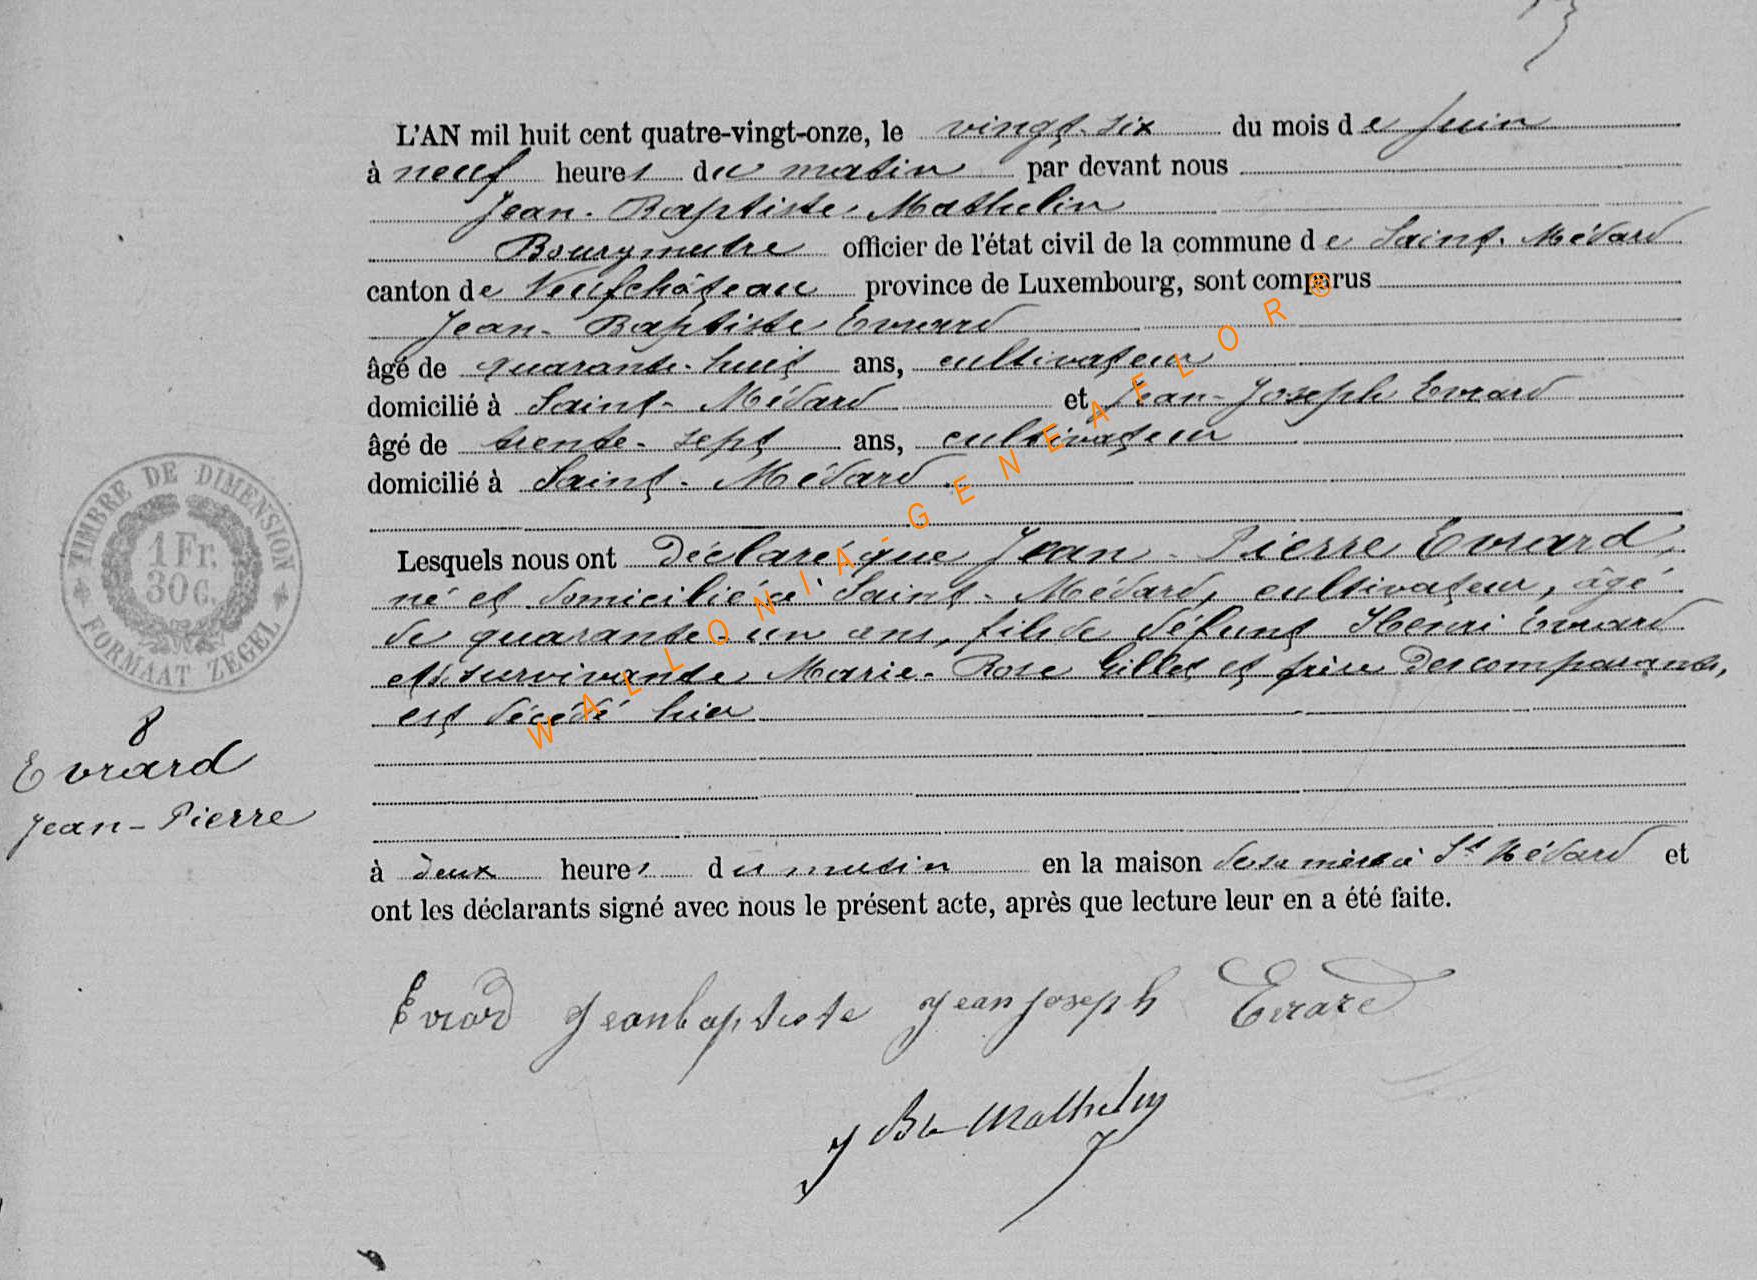 L'AN mil huit cent quatre-vingt-onze, le vingt-six du mois de Juin
à neuf heures du matin par devant nous
Jean-Baptiste Mathelin
Bourgmestre officier de l'état civil de la commune de Saint-Médard
canton de Neufchâteau province de Luxembourg, sont comparus
Jean-Baptiste Evrard
âgé de quarante-huit ans, cultivateur
domicilié à Saint-Médard et Jean-Joseph Evrard
âgé de trente-sept ans, cultivateur
domicilié à Saint-Médard.
Lesquels nous ont déclaré que Jean-Pierre Evrard,
né et domicilié à Saint-Médard, cultivateur, âgé
de quarante-un ans, fils de défunt Henri Evrard
et survivante Marie-Rose Gillet et frère des comparants,
est décédé hier
à deux heures du matin en la maison de sa mère à St Médard et
ont les déclarants signé avec nous le présent acte, après que lecture leur en a été faite.
TIMBRE DE DIMENSION
1 Fr.
30 C.
FORMAAT ZEGEL
8
Evrard
Jean-Pierre
Evrard Jeanbaptiste Jean joseph Evrard
J Bte Mathelin
WALLONIA-GENEAFLOR®